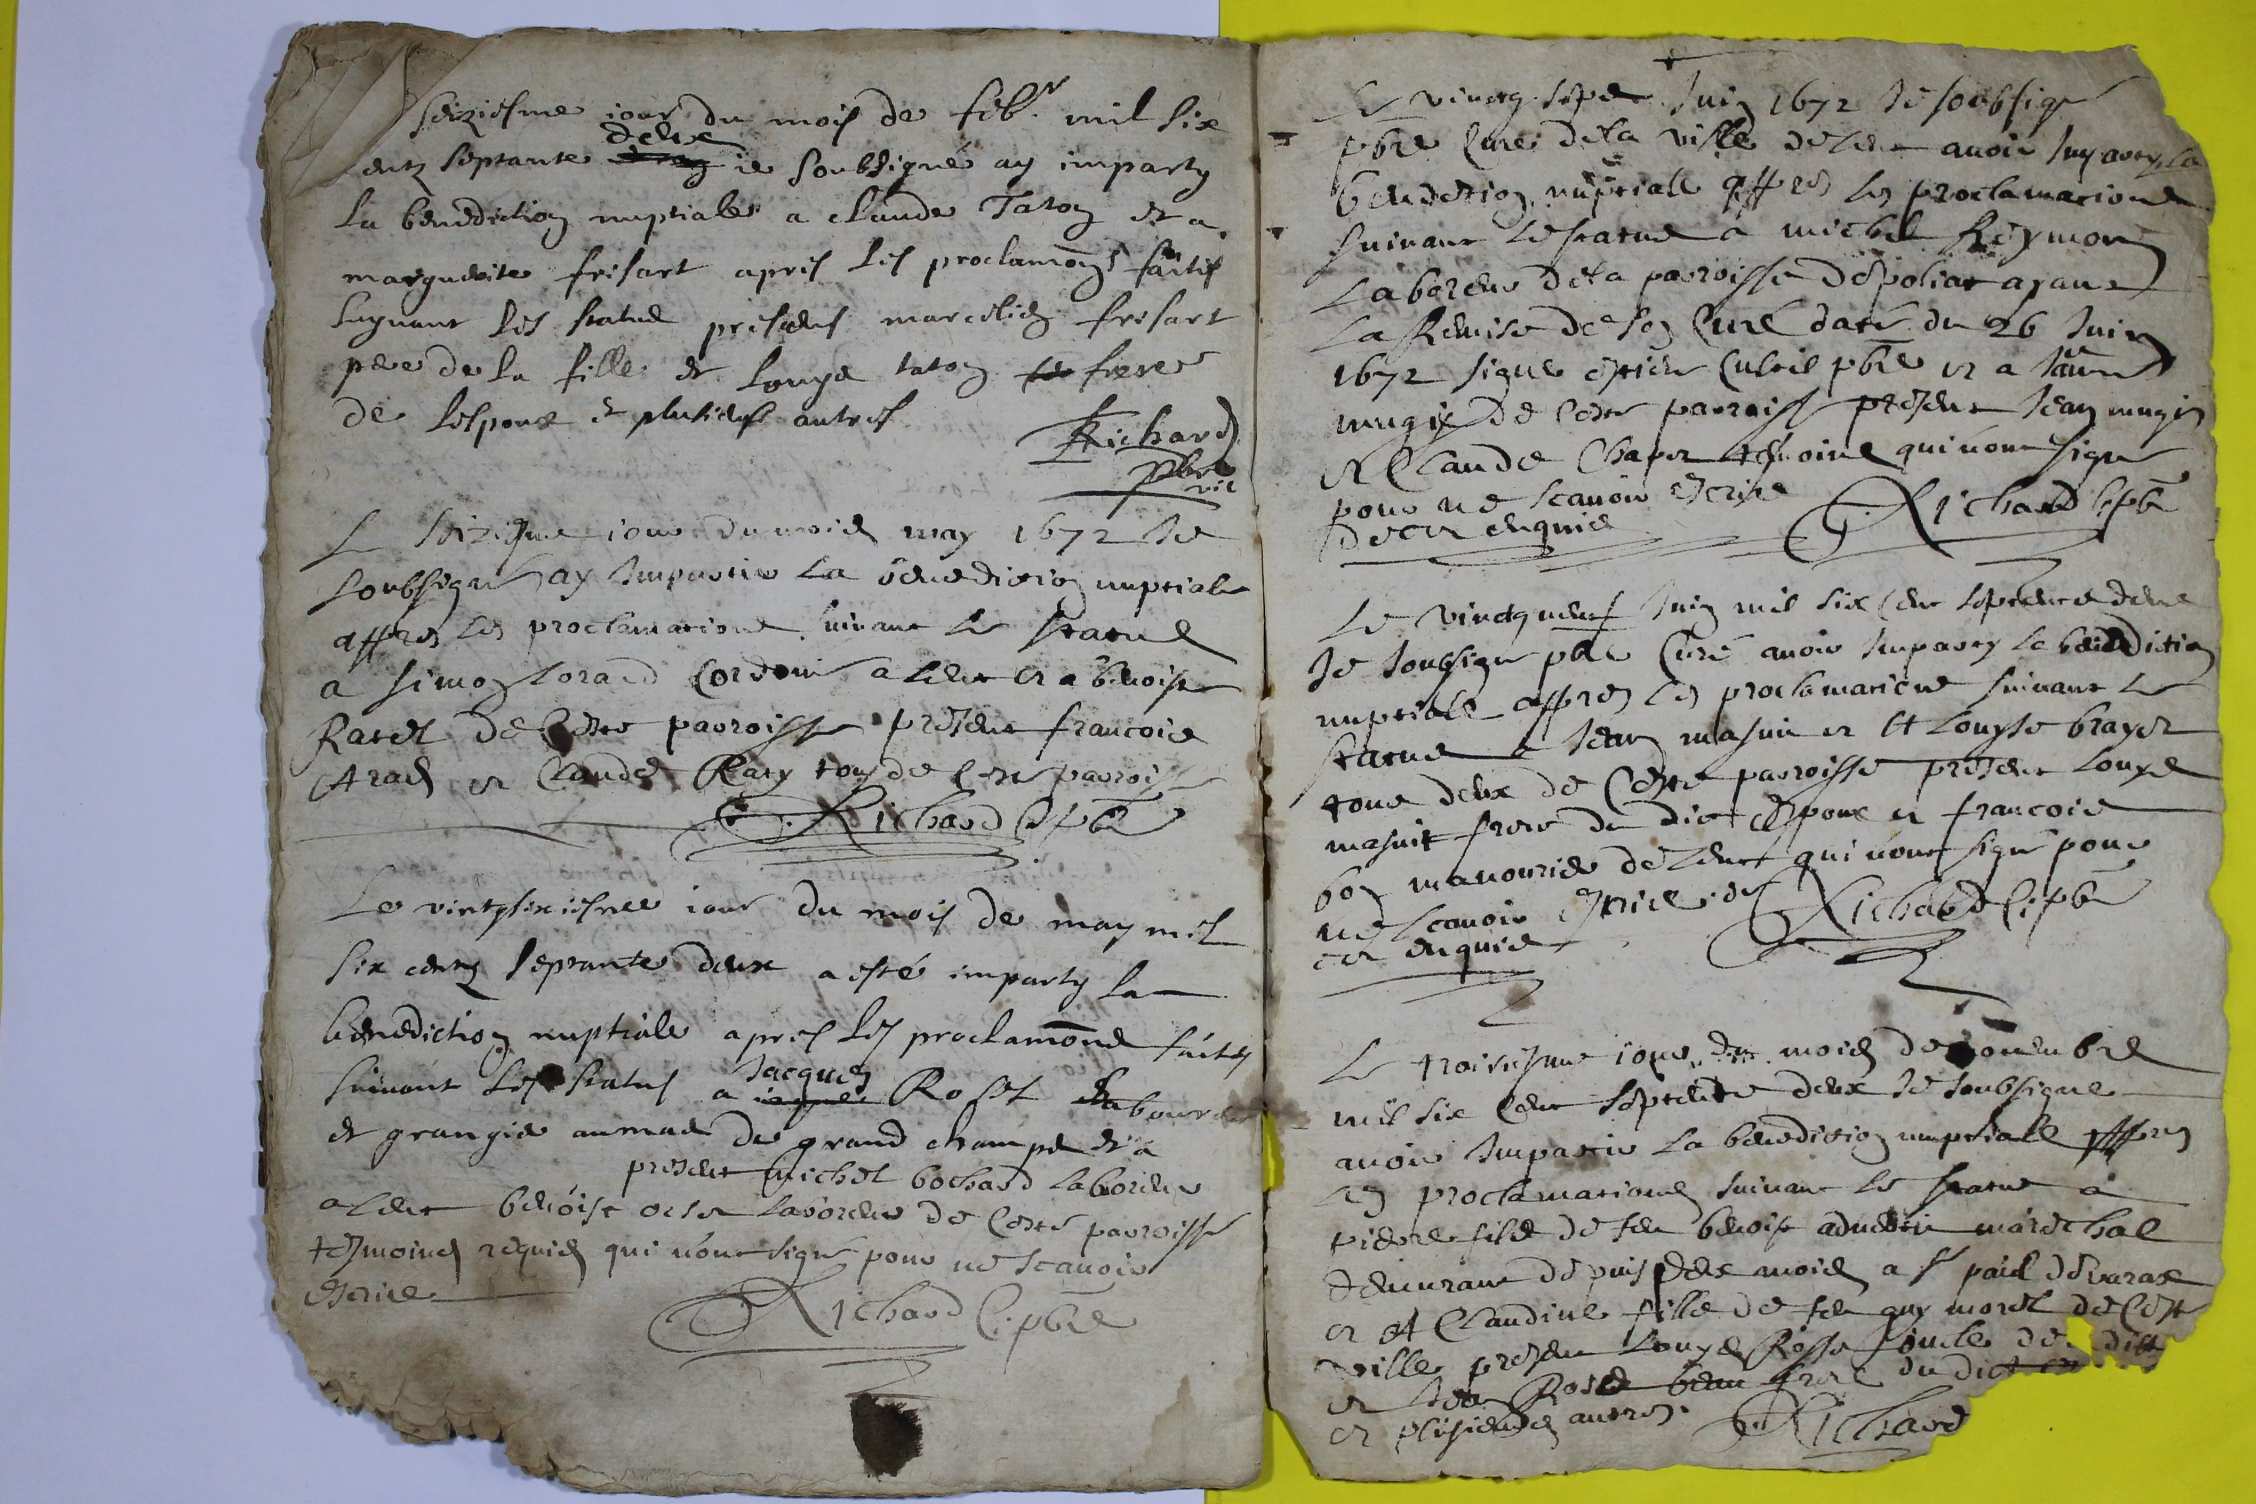 seiziesme iour du mois de feb.r mil six
centz septante deux ie soubsigné ay imparty
la benediction nuptiale a claude Taton et a
marguerite frisart apres les proclamaōns faites
suyvant les statuts presens marcelin frisart
pere de la fille et Louys taton frere
de lespoux et plusieurs autres
Richard
pbre
vic
Le seiziesme iour du mois may 1672 Je
soubsigné ay Impartie La benediction nuptiale
appres Les proclamations suivant Le statut
a simon Lorand Cordonn a Lent et a benoiste
Ratel de Ceste parroisse present francois
et Claude Raty tous de Ceste parroisse
Richard C. pbre
Le vintgsixiesme iour du mois de may mil
six centz septante deux a esté imparty la
benediction nuptiale apres les proclamaōns faites
suivant les statuts a Jacques Roset laboureur
et grangier de grand champt et a
present michel bochard Laboreur
a Lent benoist Laboreur de Ceste parroisse
tesmoins requis qui n'ont signé pour ne scavoir
escrire
Richard C. pbre
Le vingt sept Juin 1672 Je soubsigné
pbre Curé de la ville de Lent avoir Imparty La
benediction nuptiale appres Les proclamations
suivant Le statut a michel Reymon
Laboreur de La parroisse de poliat ayant
La Remise de son Curé daté du 26 Juin
1672 signé pbre et a
mugin de Ceste parroisse present Jean mugin
et Claude Chaper tesmoins qui n'ont signé
pour ne scavoir escrire
de ce enquis
Richard C. pbre
Le vinctgneuf Juin mil six Cent septente deux
Je soubsigné pbre Curé avoir Imparty La benediction
nuptiale appres Les proclamations suivant Le
statut a Jean masuit et et Louyse brayer
tous deux de Ceste parroisse present Louys
masuit frere du dict espoux et francois
bon manovrier de Lent qui n'ont signé pour
ne scavoir escrire de
ce enquis
Richard C. pbre
Le troisiesme iour du mois de novembre
mil six Cent septente deux Je soubsigné
avoir Impartie La benediction nuptiale appres
Les proclamations suivant Le statut a
pierre fils de feu benoist marechal
demeurant depuis deux mois a st paul de varax
et et Claudine fille de feu guy morel de Ceste
ville present Louys Rosse oncle de dite
et Jean Rose beau frere du dict
et plusieurs autres.
Richard